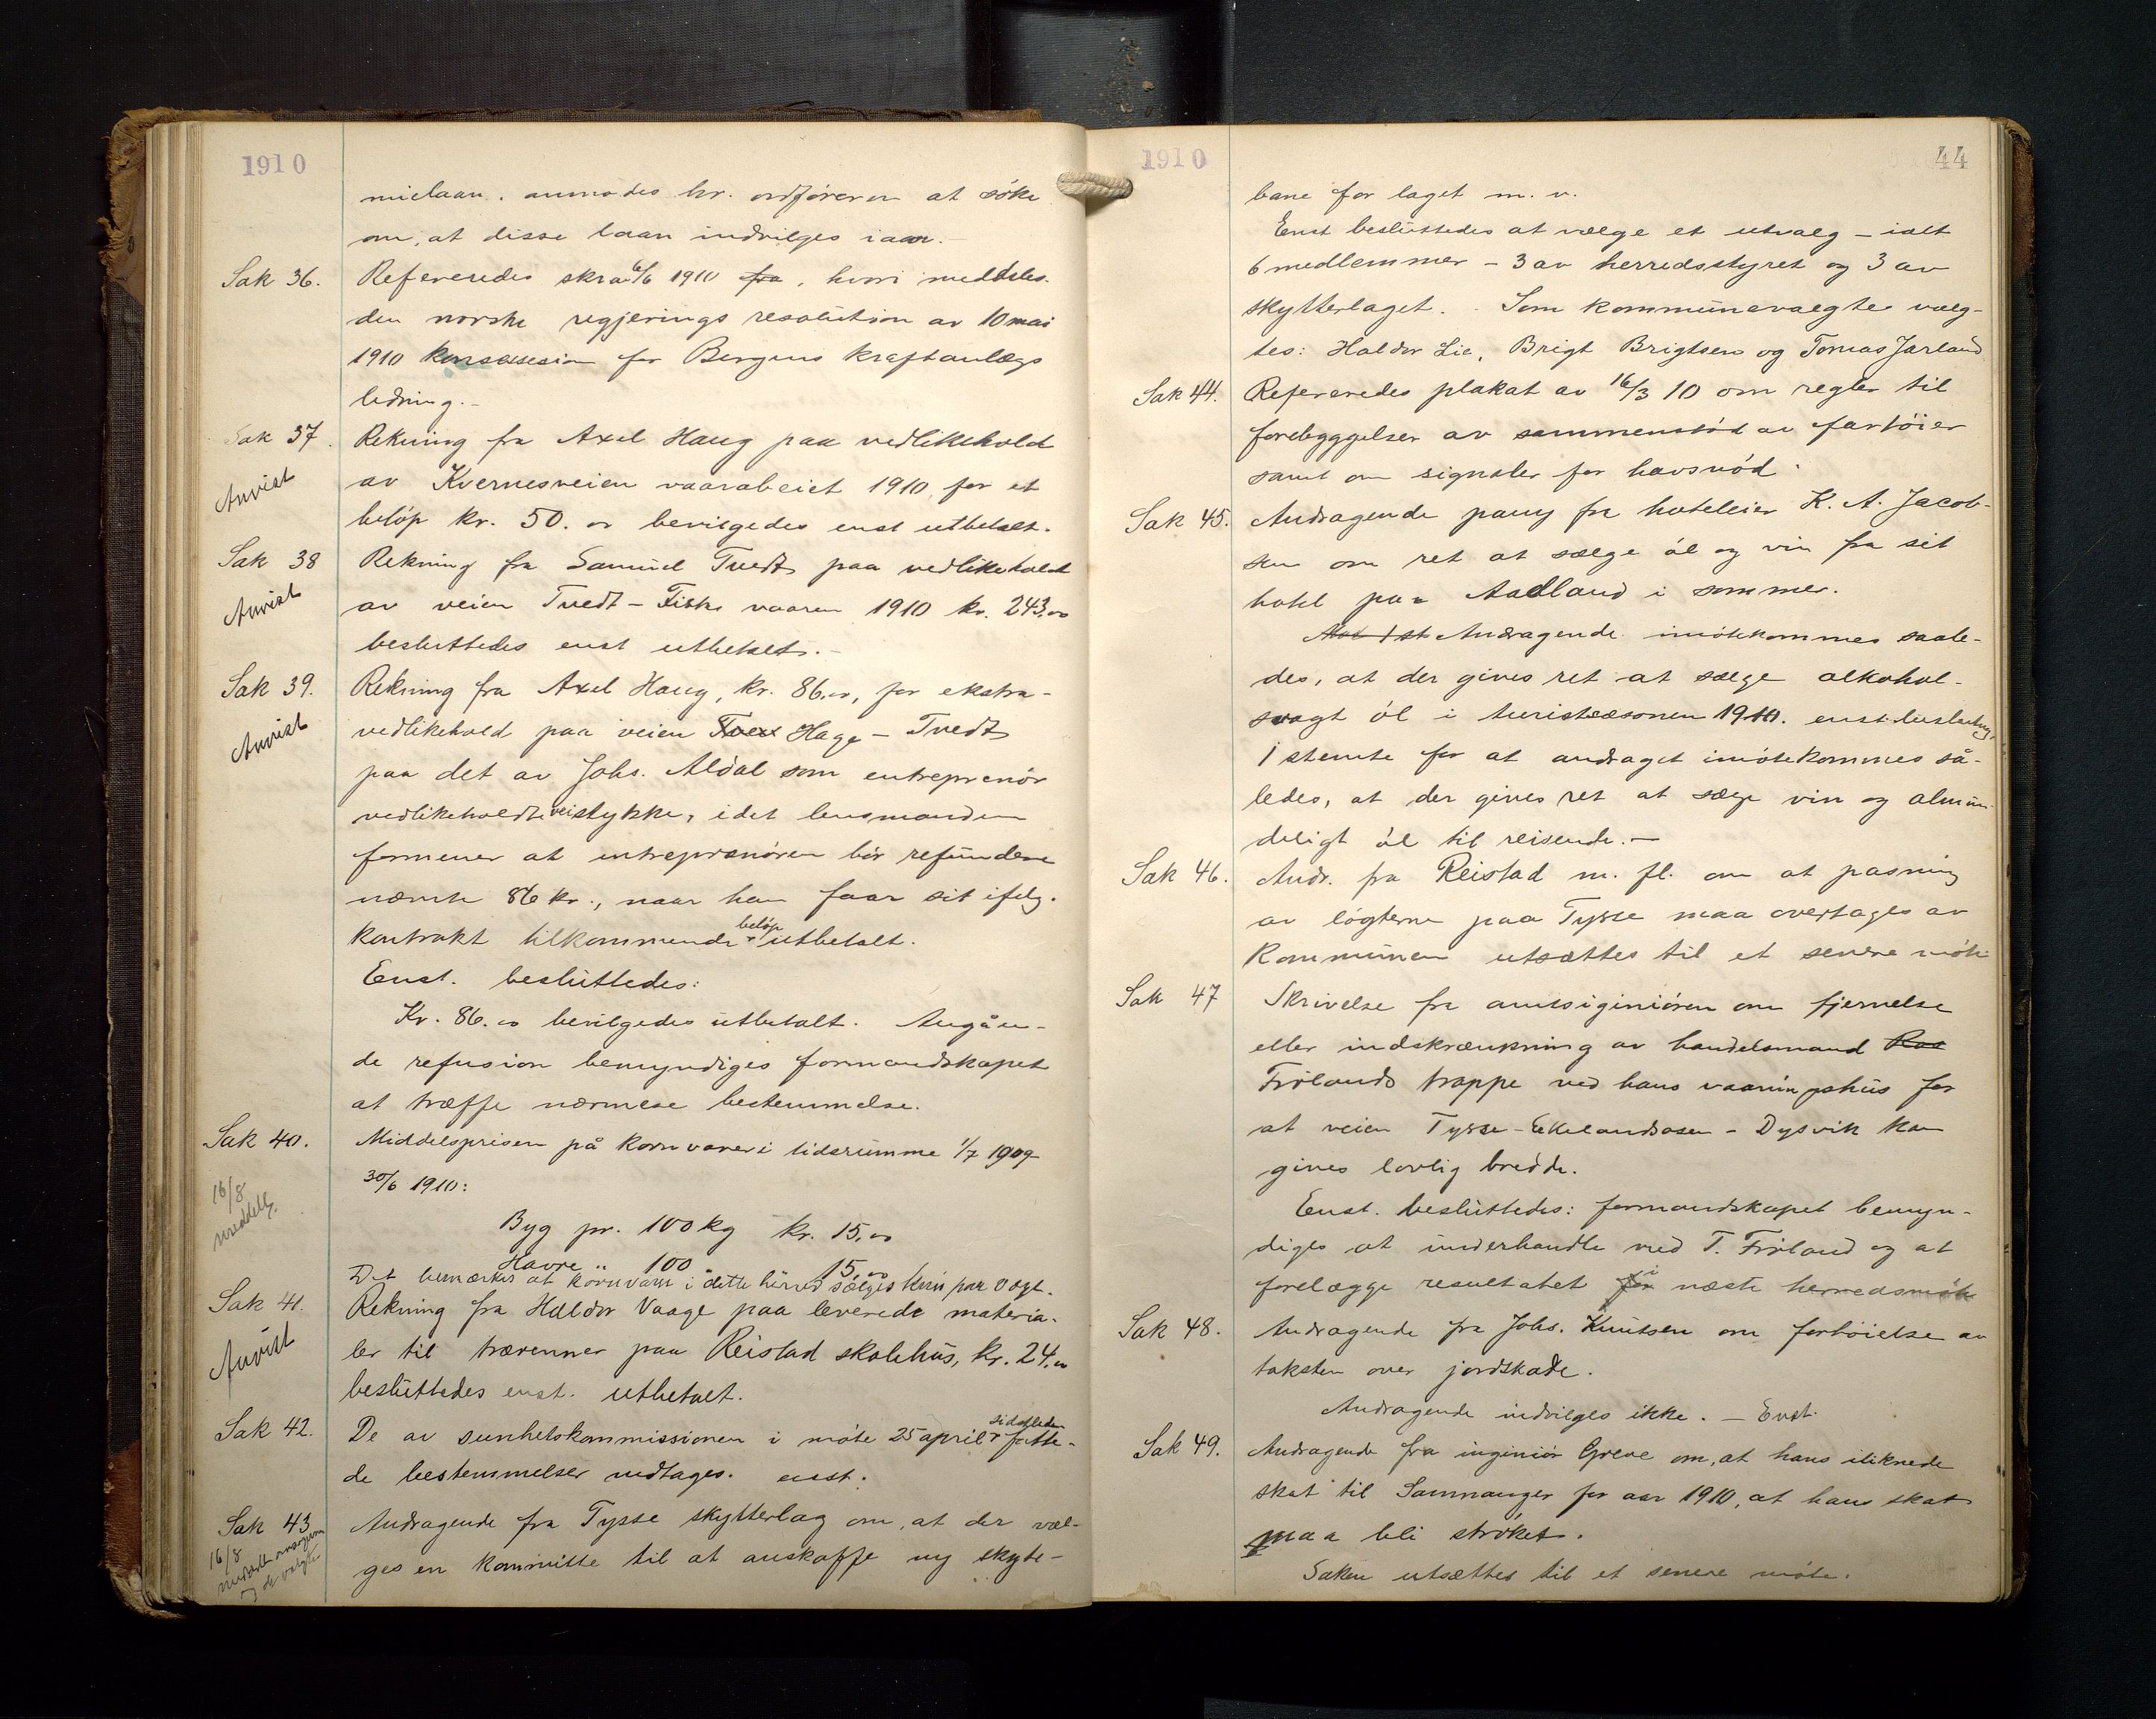 1910
mielaan. anmodes hr. ordföreren at söke
om, at disse laan indvilges iaar.-
Sak 36. Refereredes skr av 6/6 1910 fra, hvori meddeles
den norske regjerings resolution av 10 mai
1910 konsession for Bergens kraftanlægs
ledning.-
Sak 37. Rekning fra Axel Haug paa vedlikehold
Anvist
av Kvernesveien vaarabeiet 1910, for et
belöp kr. 50.00 bevilgedes enst utbetalt.
Sak 38 Rekning fra Samuel Tvedt paa vedlikehold
Anvist
av veien Tvedt - Fiske vaaren 1910 kr. 243,00
besluttedes enst utbetalt.-
Sak 39. Rekning fra Axel Haug, kr. 86.00, for ekstra-
Anvist
vedlikehold paa veien Tved Hage - Tvedt
paa det av Johs. Aldal som entreprenör
vedlikeholdte veistykke, idet lensmanden
formener at entreprenören bör refundere
nævnte 86 kr., naar han faar sit ifölg.
kontrakt tilkommende belöp utbetalt.
Enst. besluttedes:
Kr. 86.00 bevilgedes utbetalt. Angåen-
de refusion bemyndiges formandskapet
at træffe nærmere bestemmelse.
Sak 40. Middelsprisen på kornvarer i tidsrumme 1/7 1909
30/6 1910:
16/8
meddelt.
Byg pr. 100 kg kr. 15,00
Havre " 100 " 15,00
Det bemærkes at kornvarer i dette herred sælges kun paa vægt.
Sak 41. Rekning fra Haldor Vaage paa leverede materia-
Anvist
ler til trærenner paa Reistad skolehus, kr. 24.00
besluttedes enst. utbetalt.
Sak 42. De av sunhetskommissionen i möte 25 april sidstleden fatte-
de bestemmelser vedtages. enst.
Sak 43 Andragende fra Tysse skytterlag om, at der væl-
16/8
meddelt
og de valgte
ges en kommitte til at anskaffe ny skyte-
1910
44
bane for laget m. v.
Enst besluttedes at vælge et utvalg - ialt
6 medlemmer - 3 av herredsstyret og 3 av
skytterlaget. Som kommunevalgte valg-
tes: Haldor Lie, Brigt Brigtsen og Tomas Jarland
Sak 44. Refereredes plakat av 16/3 10 om regler til
forebyggelser av sammenstöd av fartöier
samt om signaler for havsnöd.
Sak 45. Andragende paany fra hoteleier K. A. Jacob-
sen om ret at sælge öl og vin fra sit
hotel paa Aadland i sommer.
Mot 1 st Andragende imötekommes saale-
des, at der gives ret at sælge alkohol-
svagt öl i turistsæsonen 1910. enst. beslutning.
1 stemte for at andraget imötekommes så-
ledes, at der gives ret at sælge vin og almin-
deligt öl til reisende.-
Sak 46. Andr. fra Reistad m. fl. om at pasning
av lögterne paa Tysse maa overtages av
kommunen utsættes til et senere möte
Sak 47 Skrivelse fra amtsiginiören om fjernelse
eller indskrænkning av handelsmand Ros
Frölands trappe ved hans vaaningshus for
at veien Tysse - Eikelandsosen - Dysvik kan
gives lovlig bredde.
Enst. besluttedes: formandskapet bemyn-
diges at underhandle med T. Fröland og at
forelægge resultatet for i næste herredsmöte
Sak 48. Andragende fra Johs. Knutsen om forhöielse av
taksten over jordskade.
Andragende indvilges ikke. - Enst.
Sak 49. Andragende fra inginiör Greve om, at hans iliknede
skat til Samnanger for aar 1910, at hans skat
maa bli ströket.
Saken utsættes til et senere möte.